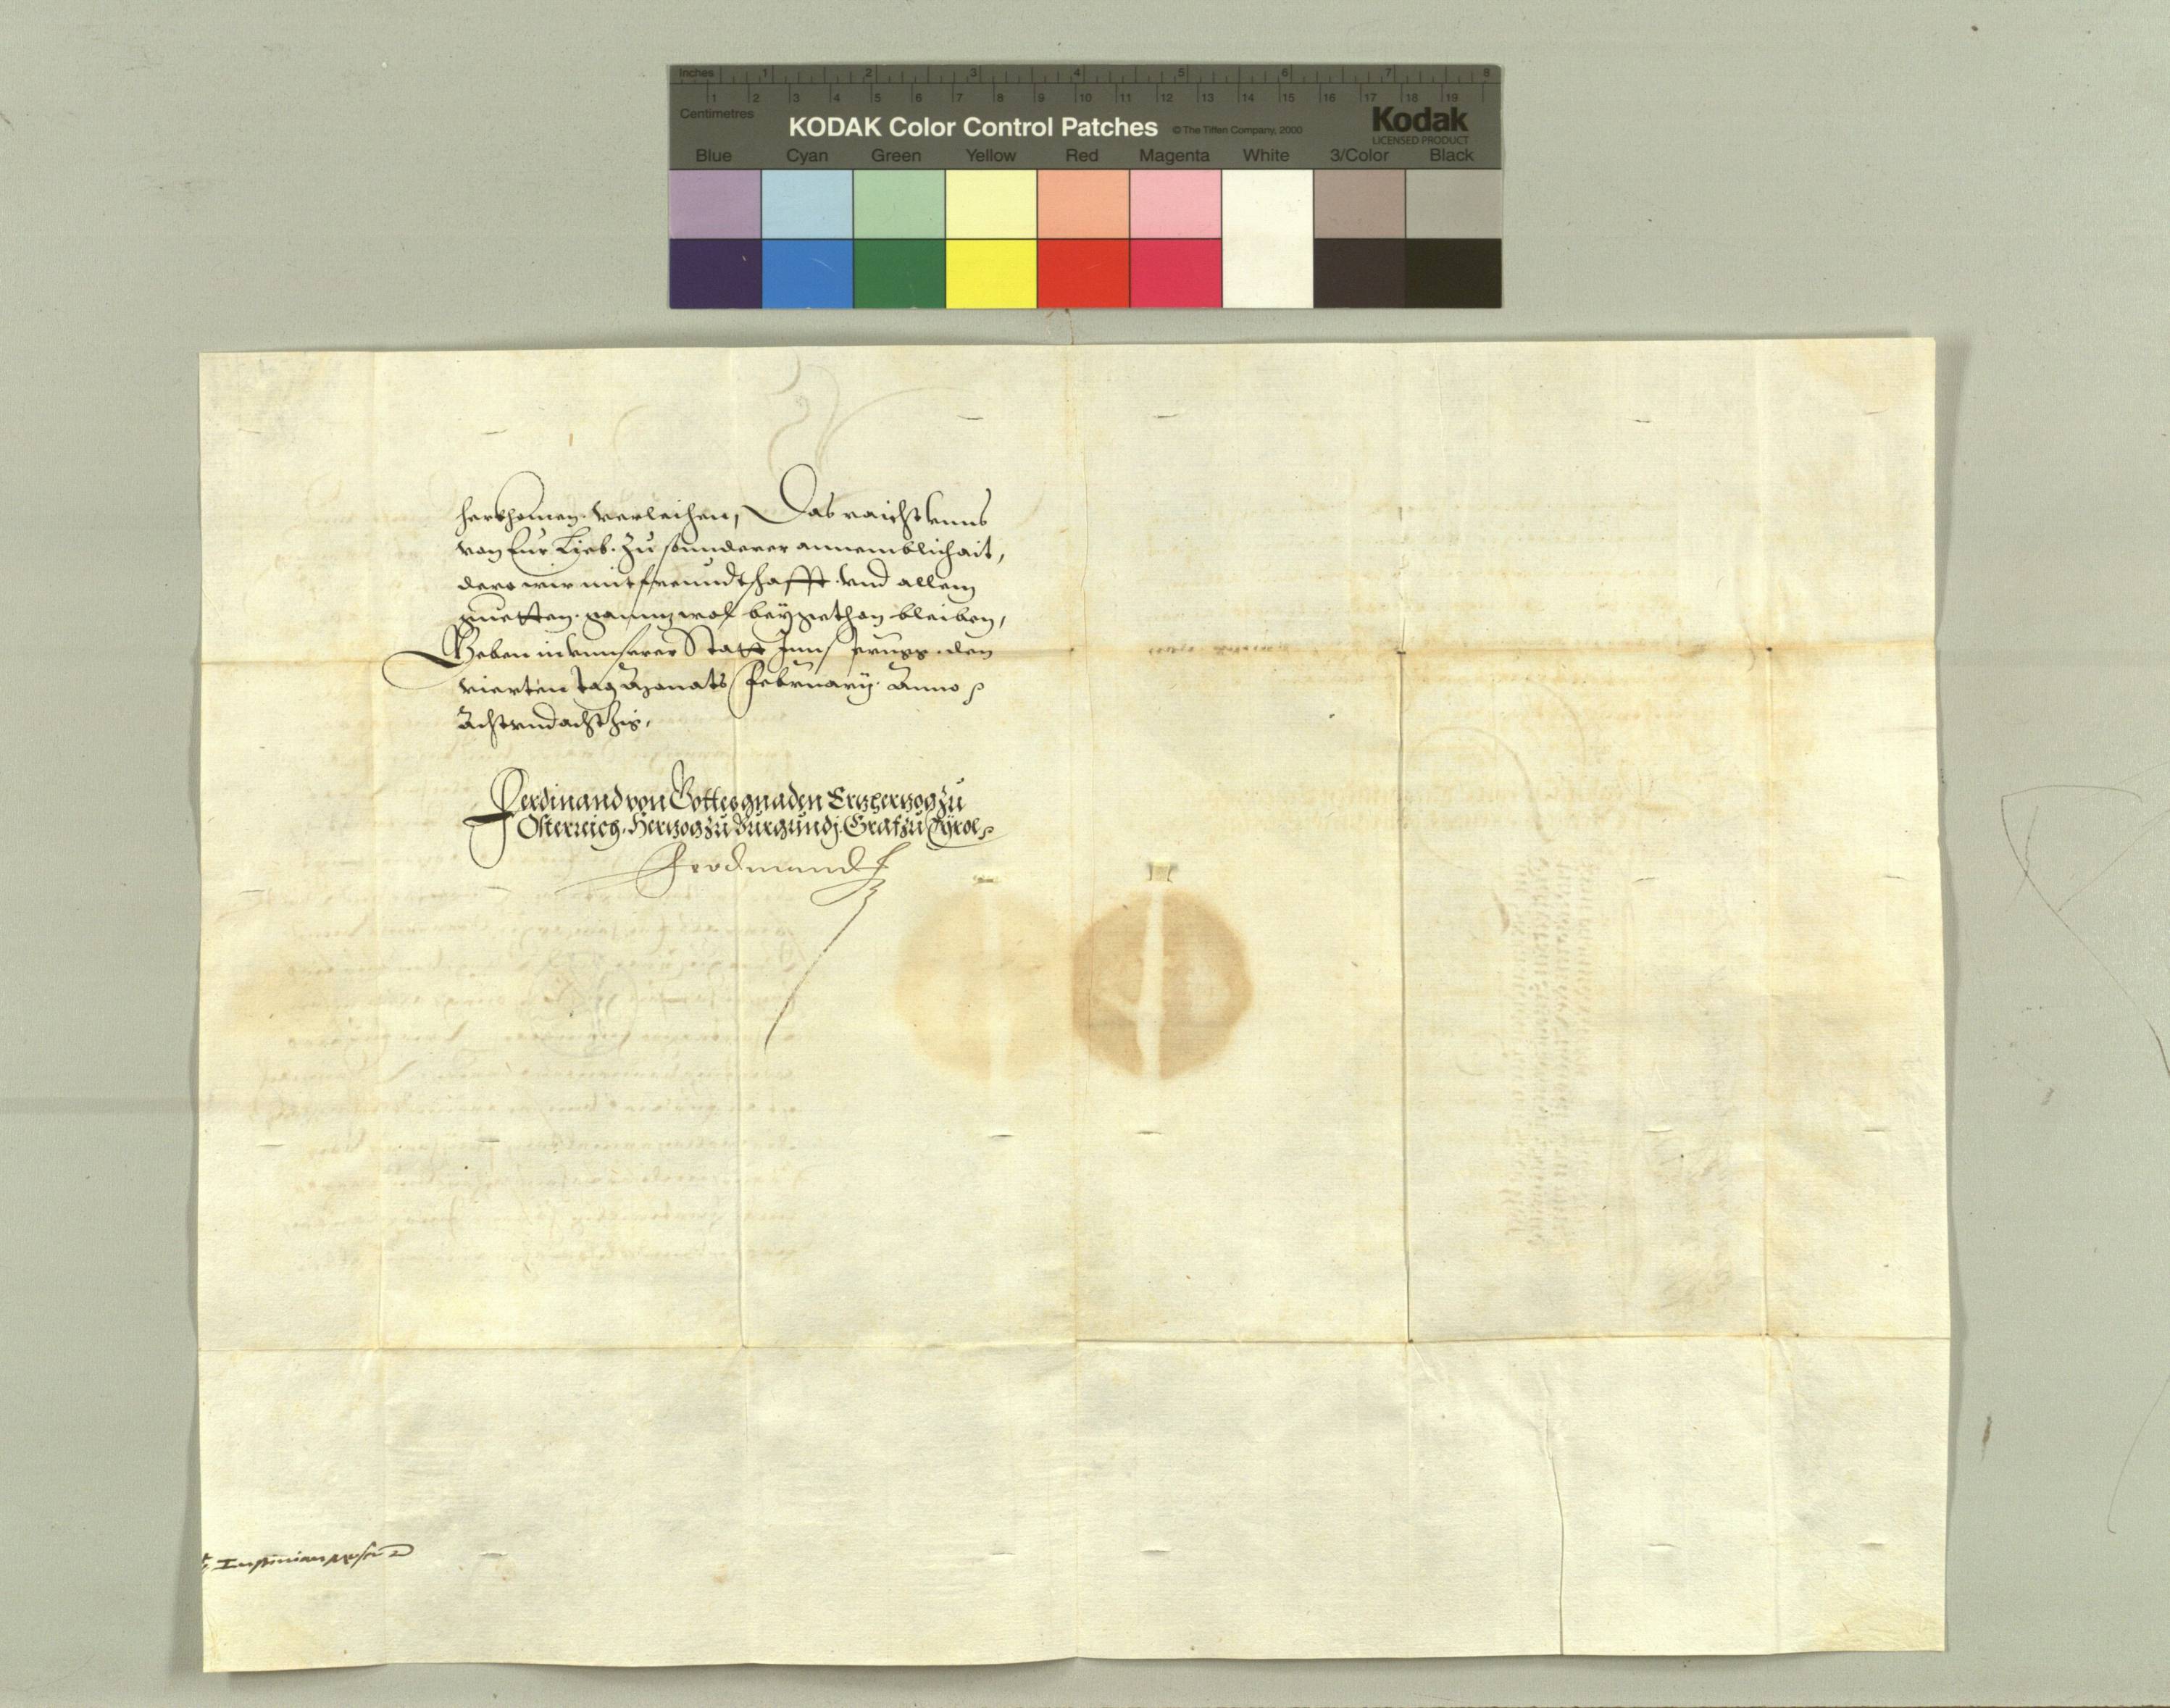 Inches 1 2 3 4 5 6 7 8
1 2 3 4 5 6 7 8 9 10 11 12 13 14 15 16 17 18 19
Centimetres
KODAK Color Control Patches © The Tiffen Company, 2000 Kodak
LICENSED PRODUCT
Blue Cyan Green Yellow Red Magenta White 3/Color Black
herkhomen verleihen, Das raicht unns
von Eur Lieb. zu sonnderer annemblichait,
dero wir mit freundtschafft vnd allem
guetten gannz wol beygethon bleiben,
Geben in vnnserer Statt Innsprugg den
vierten tag Monats February. Anno
Achtvndachtzig,
Ferdinand von Gottes gnaden Ertzherzog zu
Österreich. Hertzog zu Burgundj. Graf zu Tyrol
Ferdinand